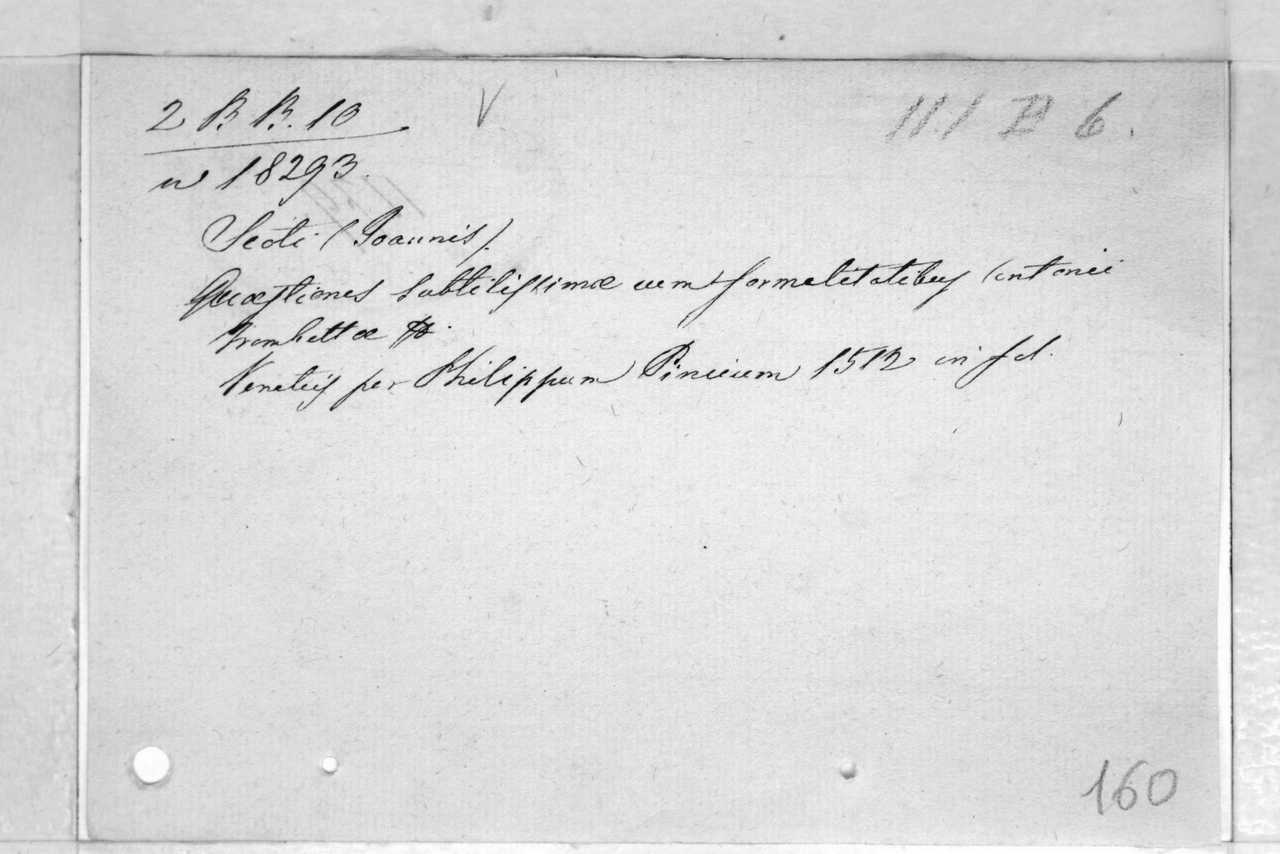 2 B B. 10 V III B 6.
n 18293.
Scoti (Joannis).
Quæstiones subtilissimæ cum formalitatibus Antonii
Trombettæ
Venetiis per Philippum Pincium 1512 in fol.
160